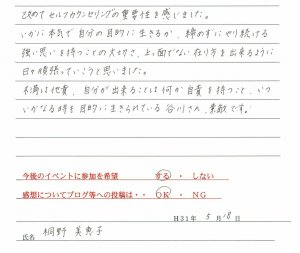 改めてセルフカウンセリングの重要性を感じました。
いかに本気で自分の目的に生きるか、締めずにやり続ける
強い思いを持つことの大切さ、上っ面でない在り方を出来るように
日々頑張っていこうと思いました。
不満は他責、自分が出来ることは何か自責を持つこと、いつ
いかなる時を目的に生きられている谷川さん、素敵です。
今後のイベントに参加を希望 する ・ しない
感想についてブログ等への投稿は・・ OK ・ NG
H31年 5月18日
氏名 桐野 美恵子